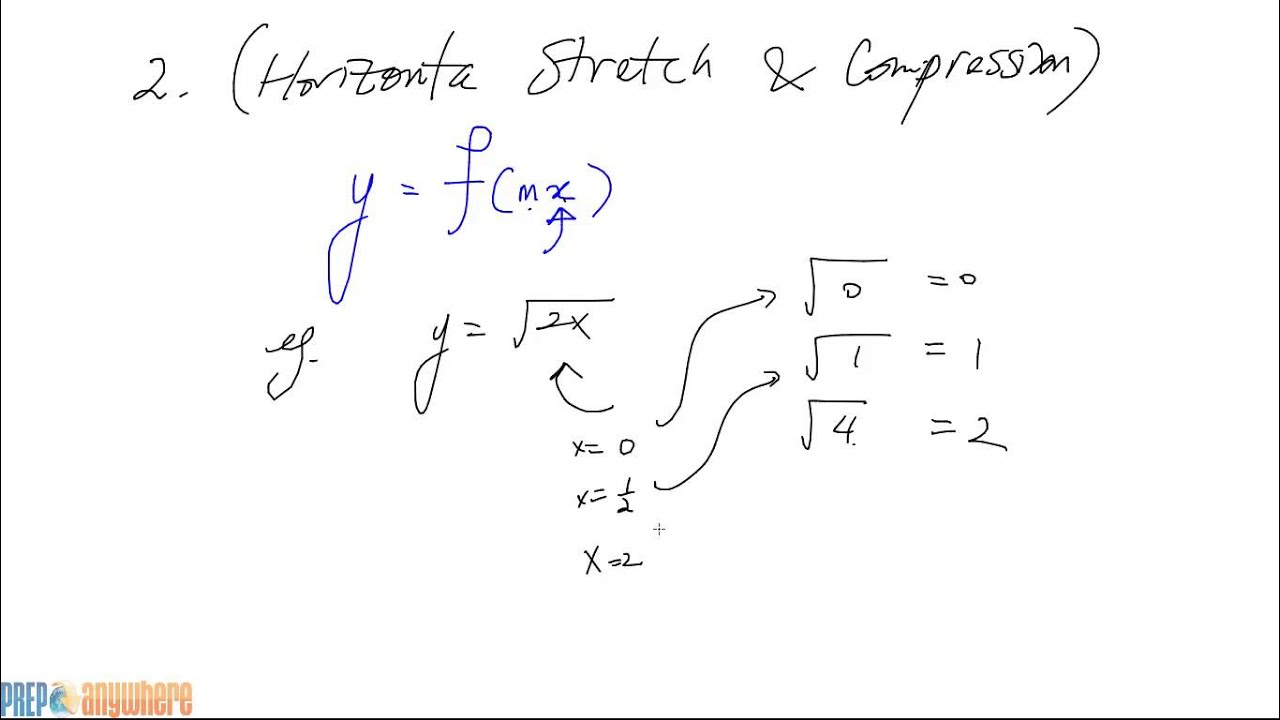 2. (Horizonta Stretch & Compression)
y = f(mx)
eg. y = √2x
√0 = 0
√1 = 1
√4 = 2
x = 0
x = 1/2
x = 2
PREP anywhere